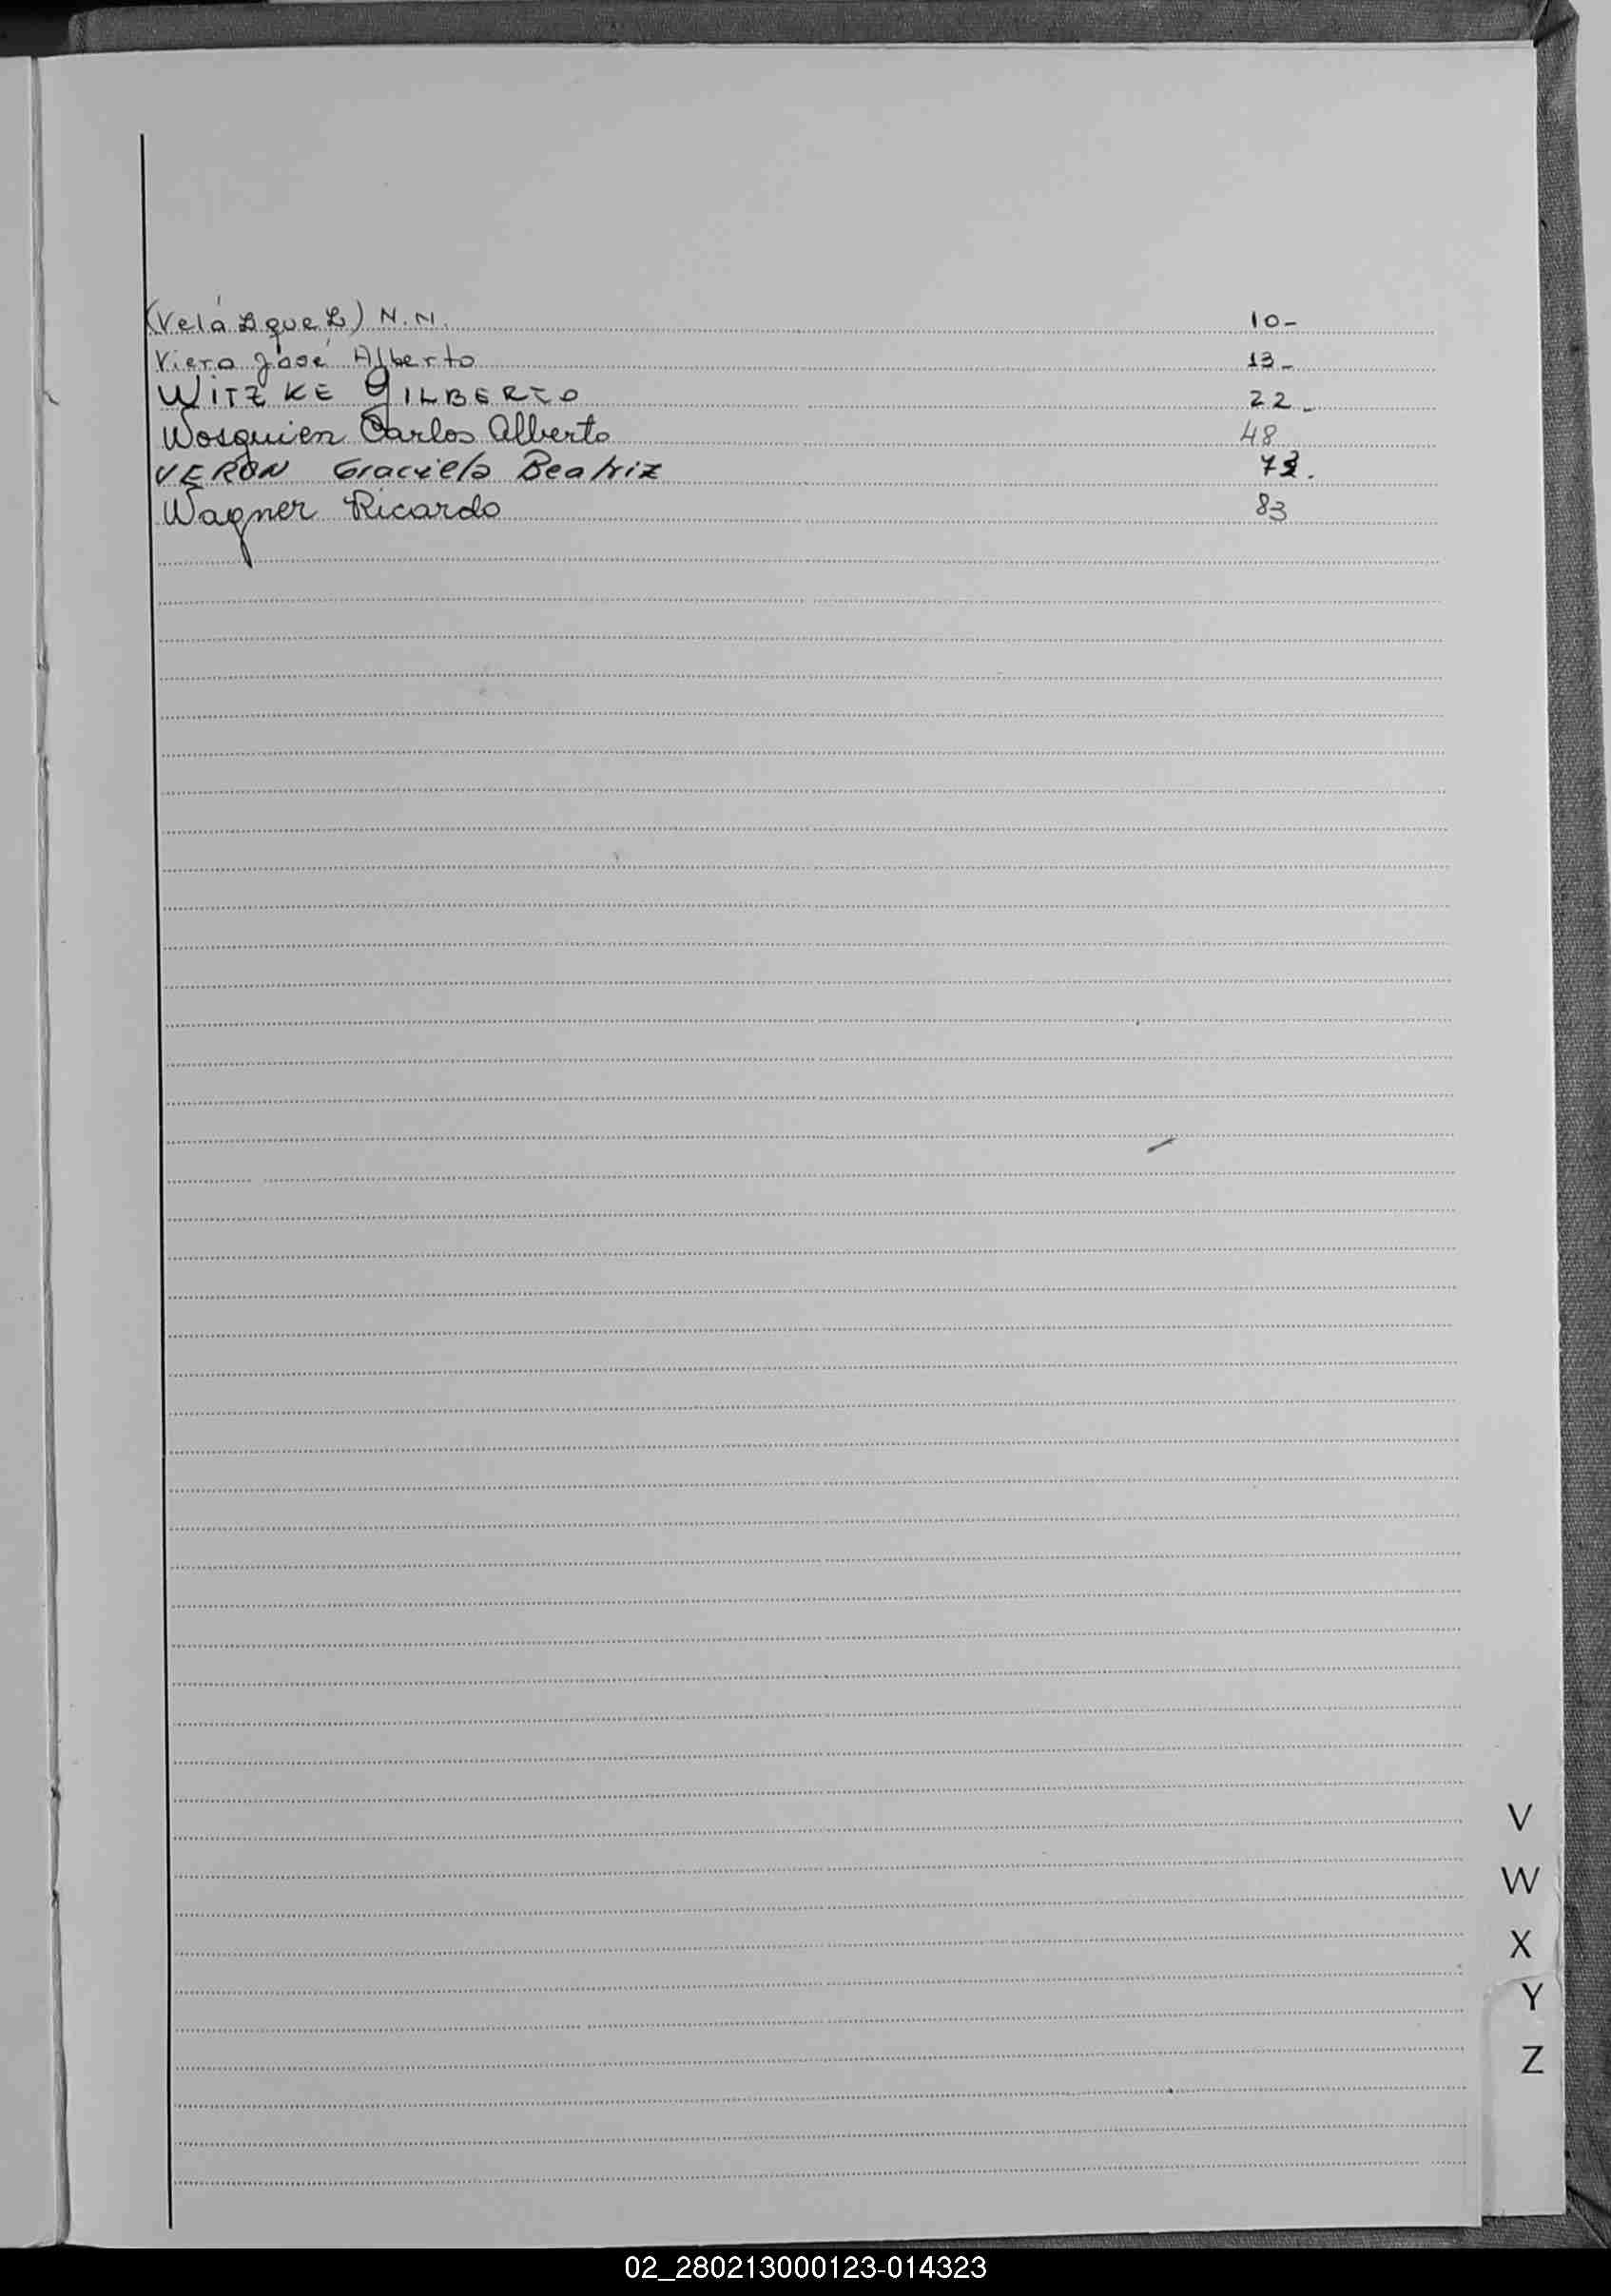 (Velázquez) N.N. 10-
Viera José Alberto 13-
WITZKE GILBERTO 22-
Wosquien Carlos Alberto 48
VERON Graciela Beatriz 73.
Wagner Ricardo 83
V
W
X
Y
Z
02_280213000123-014323